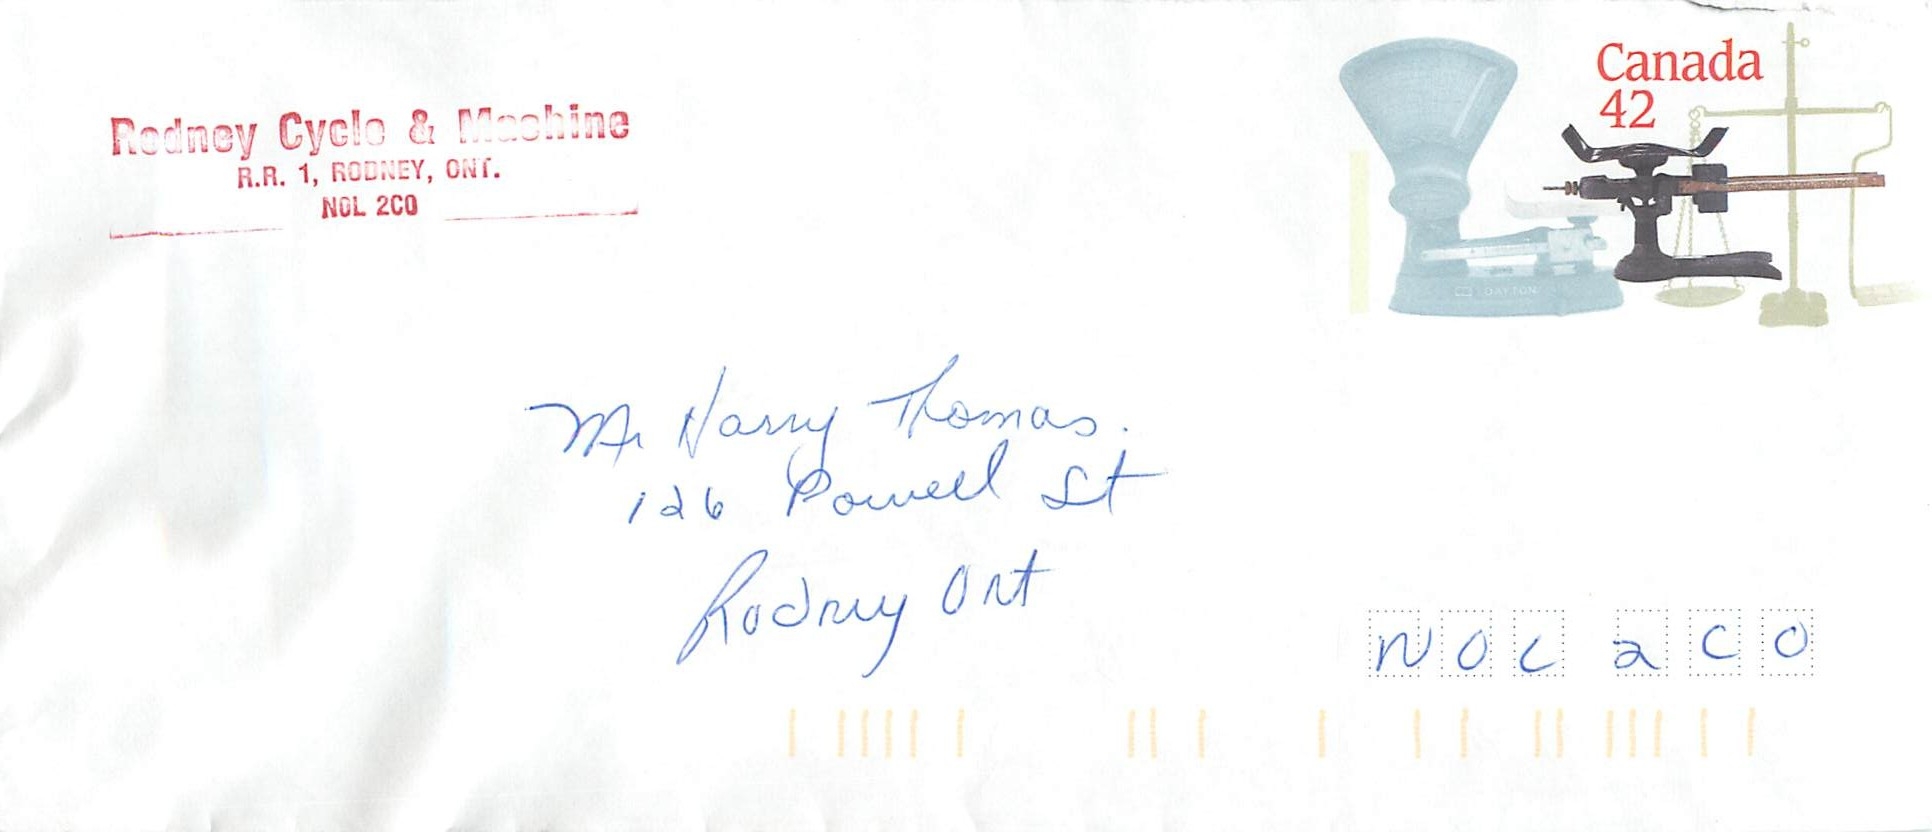 Rodney Cycle & Machine
R.R. 1, RODNEY, ONT.
N0L 2C0
Canada
42
DAYTON
Mr Harry Thomas.
126 Powell St
Rodney Ont
N0L 2C0